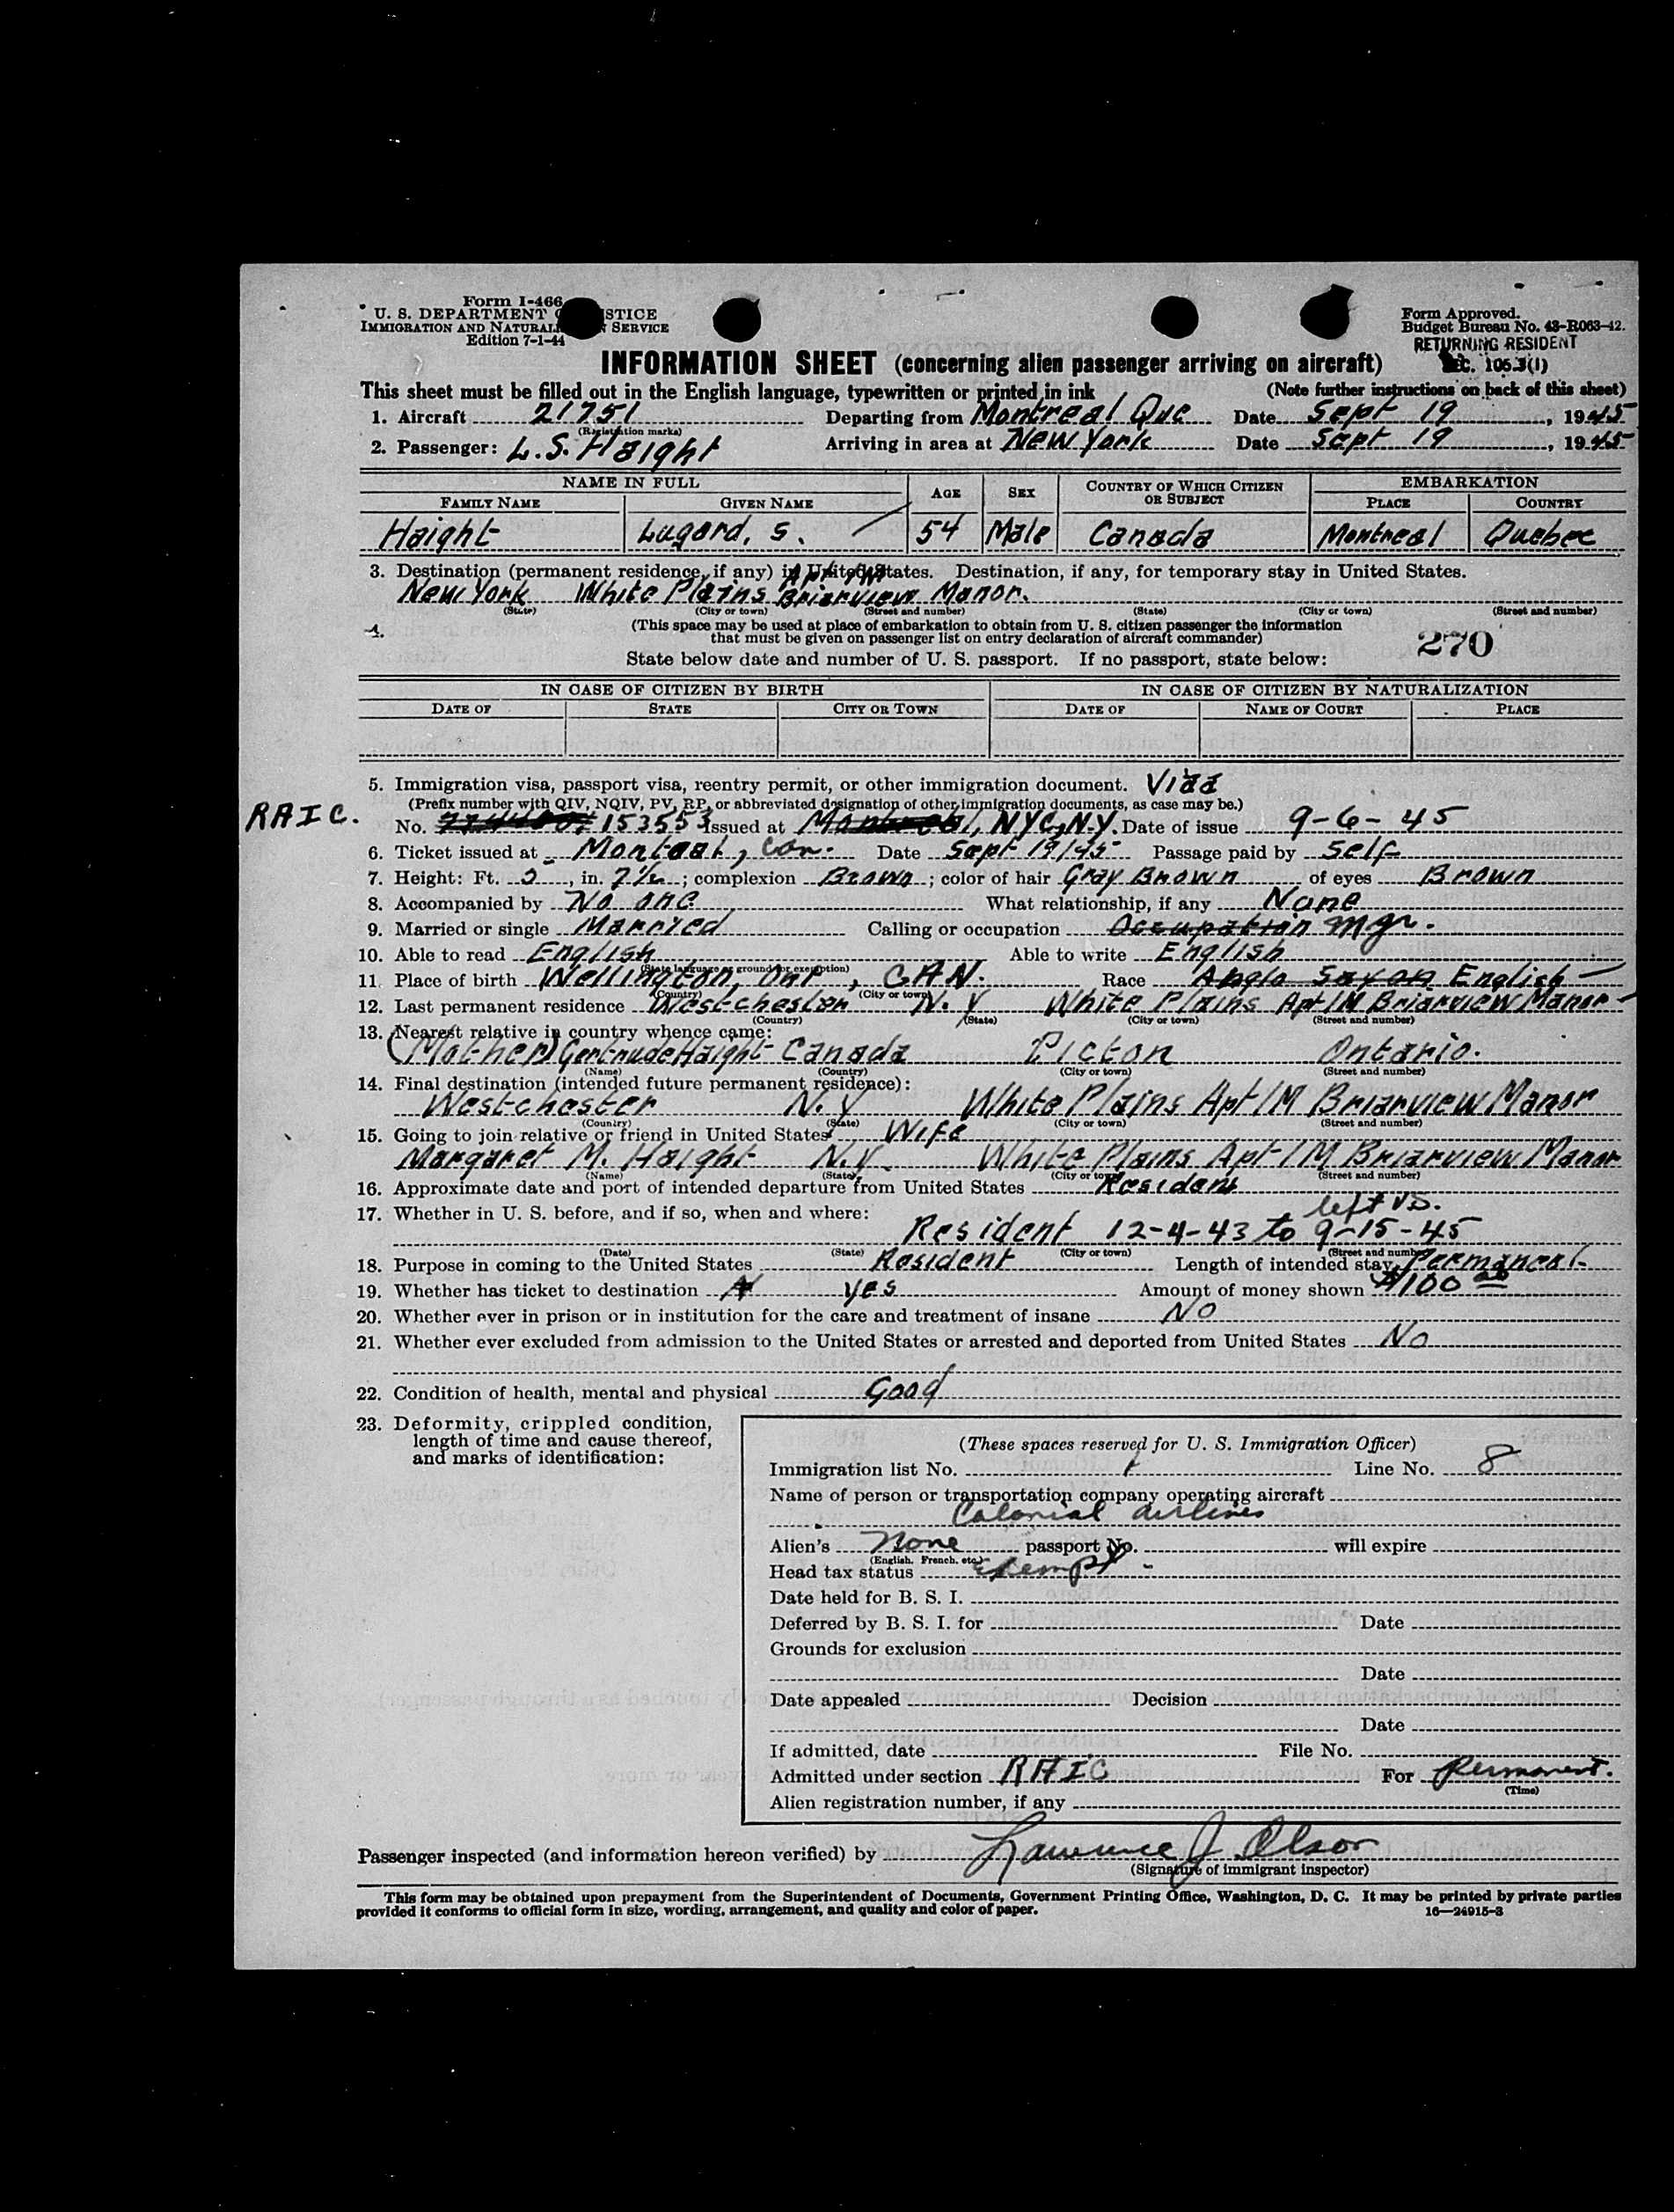 Form I-466
U. S. DEPARTMENT STICE
IMMIGRATION AND NATURALI SERVICE
Edition 7-1-44
Form Approved.
Budget Bureau No. 43-R063-42.
RETURNING RESIDENT
SEC. 105.3(1)
INFORMATION SHEET (concerning alien passenger arriving on aircraft)
This sheet must be filled out in the English language, typewritten or printed in ink (Note further instructions on back of this sheet)
1. Aircraft 21751 Departing from Montreal Que Date Sept 19, 1945
(Registration marks)
2. Passenger: L.S. Haight Arriving in area at New York Date Sept 19, 1945
NAME IN FULL AGE SEX COUNTRY OF WHICH CITIZEN OR SUBJECT EMBARKATION
FAMILY NAME GIVEN NAME PLACE COUNTRY
Haight Lugard, S. 54 Male Canada Montreal Quebec
3. Destination (permanent residence, if any) in United States. Destination, if any, for temporary stay in United States.
New York White Plains Briarview Manor.
(State) (City or town) (Street and number) (State) (City or town) (Street and number)
4. (This space may be used at place of embarkation to obtain from U. S. citizen passenger the information
that must be given on passenger list on entry declaration of aircraft commander)
270
State below date and number of U. S. passport. If no passport, state below:
IN CASE OF CITIZEN BY BIRTH IN CASE OF CITIZEN BY NATURALIZATION
DATE OF STATE CITY OR TOWN DATE OF NAME OF COURT PLACE
5. Immigration visa, passport visa, reentry permit, or other immigration document. Visa
(Prefix number with QIV, NQIV, PV, RP, or abbreviated designation of other immigration documents, as case may be.)
RAIC. No. 153553 Issued at Montreal, NYC, N.Y. Date of issue 9-6-45
6. Ticket issued at Montreal, Can. Date Sept 19/45 Passage paid by Self
7. Height: Ft. 5, in. 7½; complexion Brown; color of hair Gray Brown of eyes Brown
8. Accompanied by No one What relationship, if any None
9. Married or single Married Calling or occupation Occupation Mgr.
10. Able to read English Able to write English
(State language or ground for exemption)
11. Place of birth Wellington, Ont, CAN. Race Anglo Saxon English
(Country) (City or town)
12. Last permanent residence Westchester N.Y White Plains Apt 1M Briarview Manor
(Country) (State) (City or town) (Street and number)
13. Nearest relative in country whence came:
(Mother) Gertrude Haight Canada Picton Ontario.
(Name) (Country) (City or town) (Street and number)
14. Final destination (intended future permanent residence):
Westchester N.Y White Plains Apt 1M Briarview Manor
(Country) (State) (City or town) (Street and number)
15. Going to join relative or friend in United States Wife
Margaret M. Haight N.Y. White Plains Apt 1M Briarview Manor
(Name) (State) (City or town) (Street and number)
16. Approximate date and port of intended departure from United States Resident
17. Whether in U. S. before, and if so, when and where: left U.S.
Resident 12-4-43 to 9-15-45
(Date) (State) (City or town) (Street and number)
18. Purpose in coming to the United States Resident Length of intended stay Permanent
19. Whether has ticket to destination yes Amount of money shown $100 00
20. Whether ever in prison or in institution for the care and treatment of insane No
21. Whether ever excluded from admission to the United States or arrested and deported from United States No
22. Condition of health, mental and physical Good
23. Deformity, crippled condition,
length of time and cause thereof,
and marks of identification:
(These spaces reserved for U. S. Immigration Officer)
Immigration list No. 1 Line No. 8
Name of person or transportation company operating aircraft
Colonial Airlines
Alien's None passport No. will expire
(English, French, etc.)
Head tax status Exempt -
Date held for B. S. I.
Deferred by B. S. I. for Date
Grounds for exclusion
Date
Date appealed Decision
Date
If admitted, date File No.
Admitted under section RAIC For Permanent.
(Time)
Alien registration number, if any
Passenger inspected (and information hereon verified) by Lawrence J Olson
(Signature of immigrant inspector)
This form may be obtained upon prepayment from the Superintendent of Documents, Government Printing Office, Washington, D. C. It may be printed by private parties
provided it conforms to official form in size, wording, arrangement, and quality and color of paper. 16—24915-3